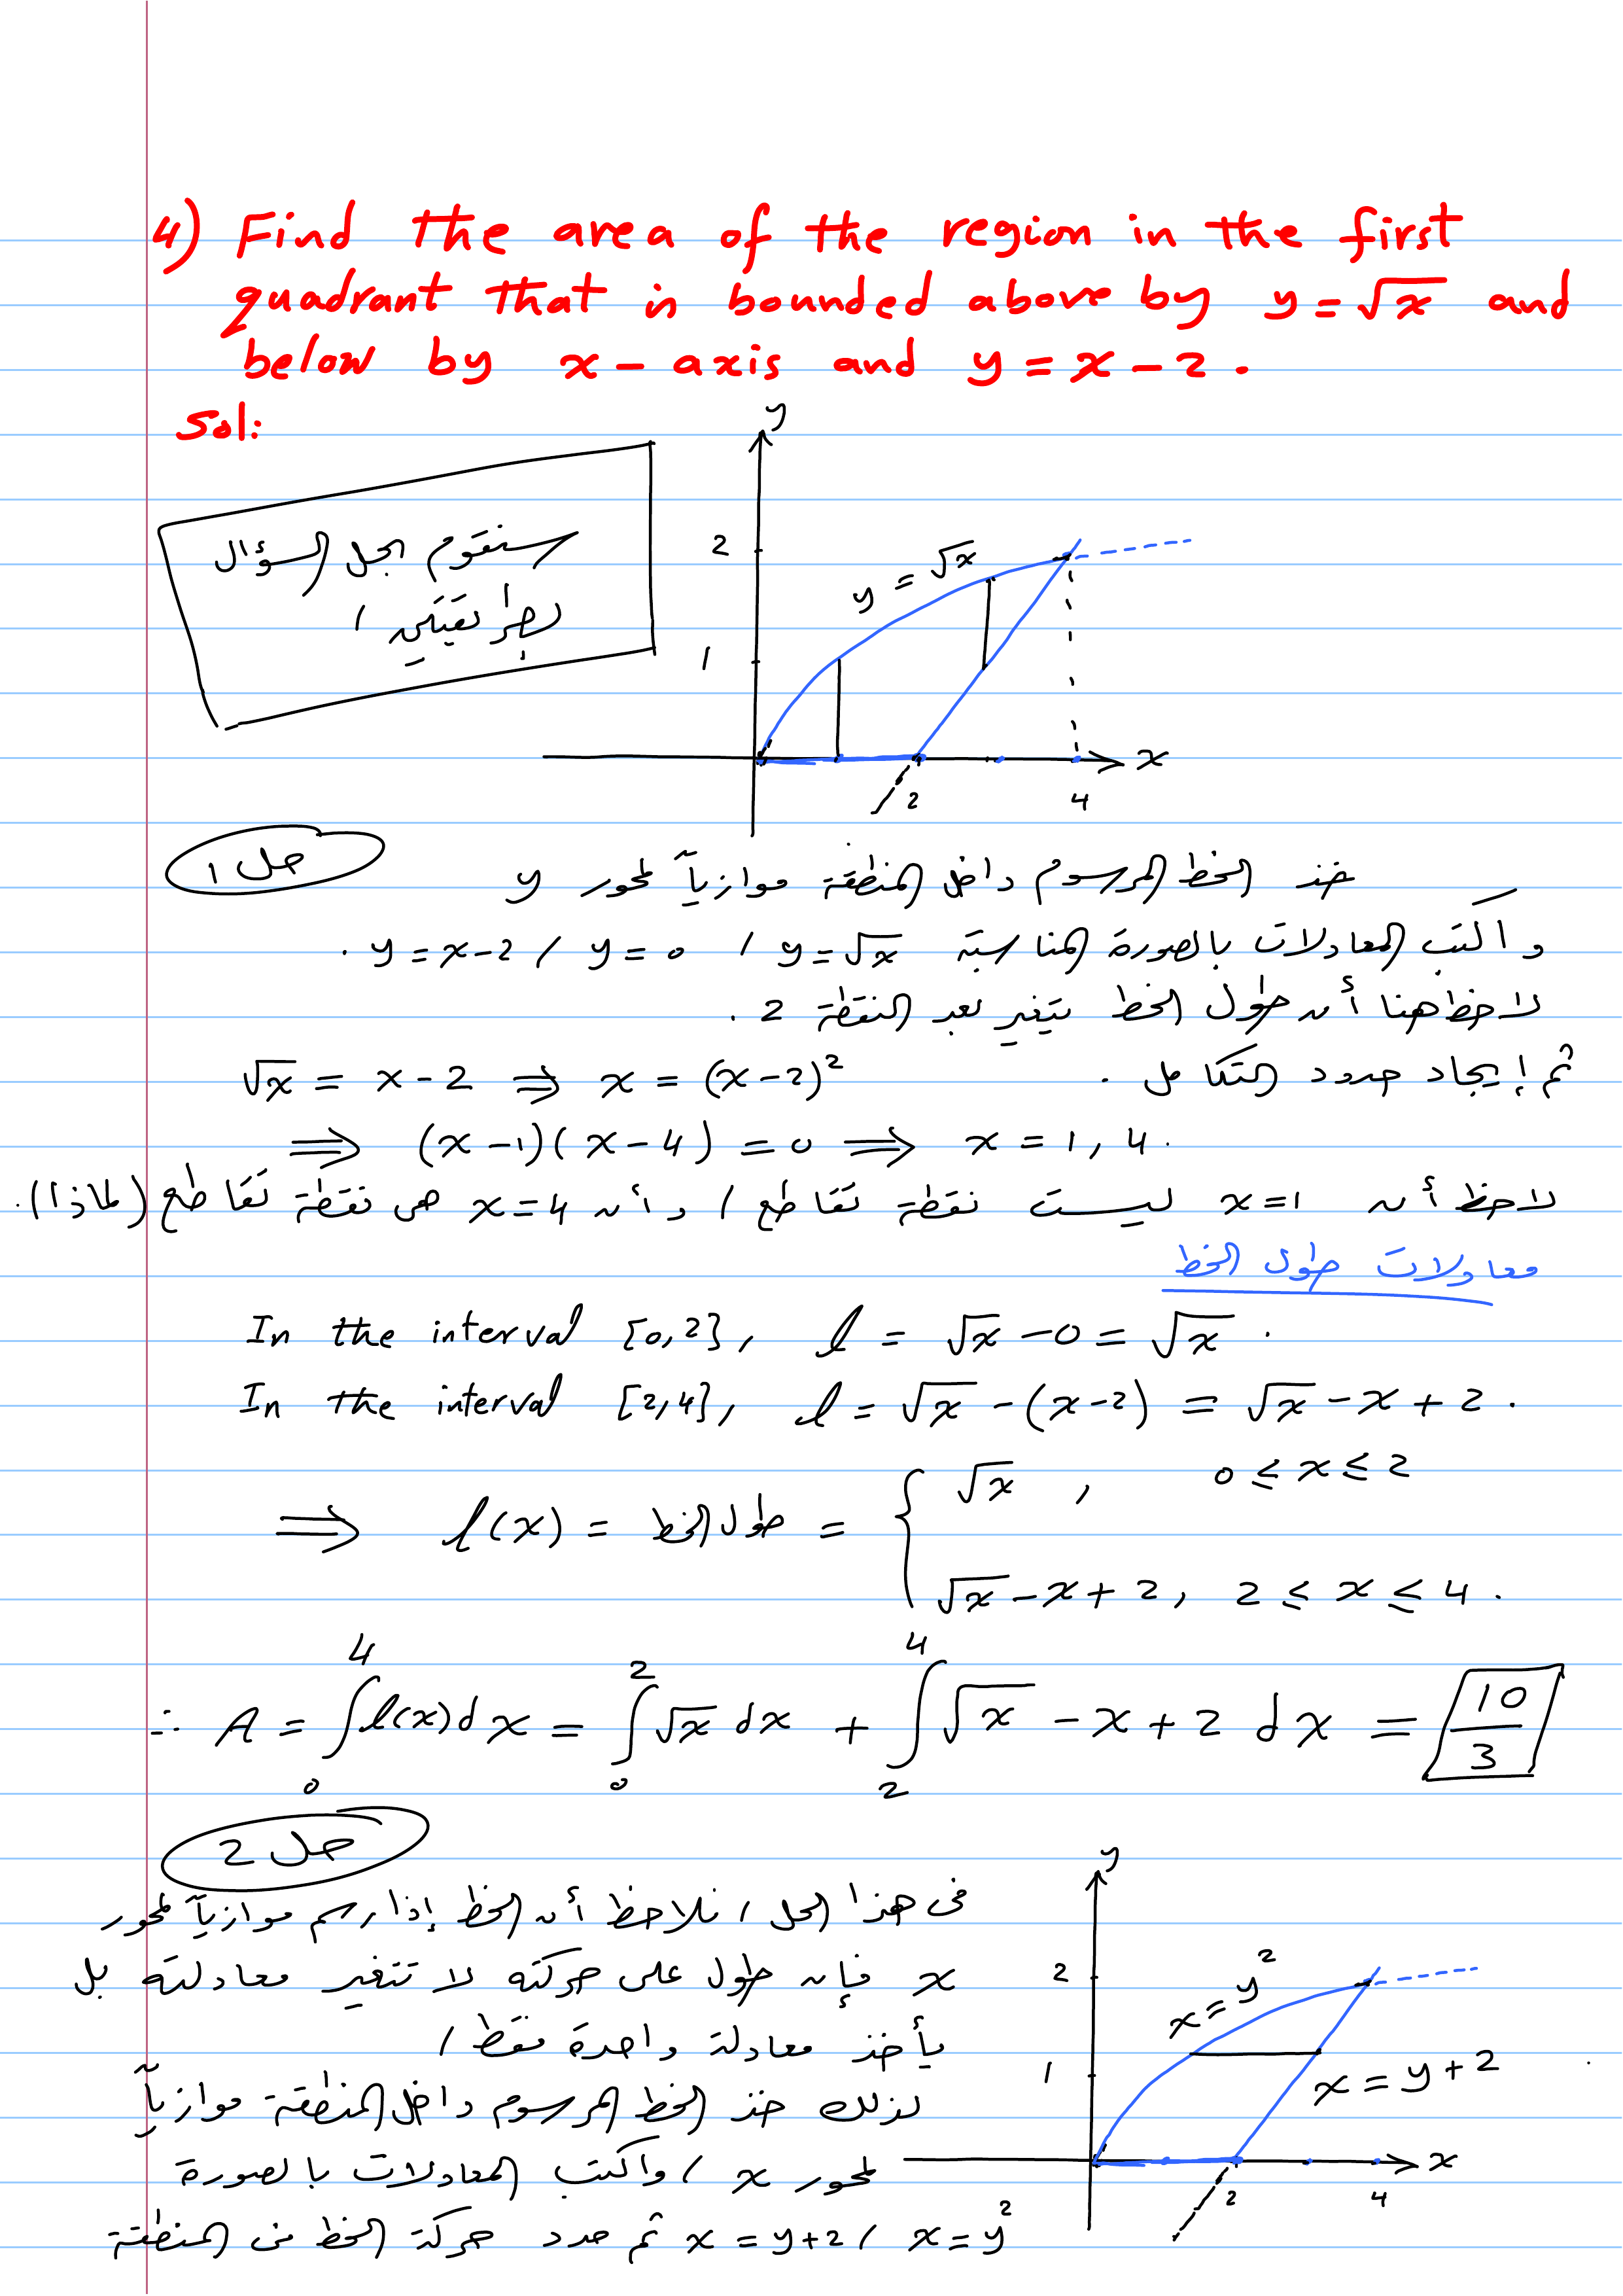 4) Find the area of the region in the first
quadrant that is bounded above by y = √x and
below by x - axis and y = x - 2 .
Sol:
سنقوم بحل السؤال
بطريقتين ،
y
2
y = √x
1
x
2
4
حل 1
خذ الخط المرسوم داخل المنطقة موازياً لمحور y
واكتب المعادلات بالصورة المناسبة y = √x ، y = 0 ، y = x - 2 .
لاحظ هنا أن طول الخط يتغير بعد النقطة 2 .
ثم إيجاد حدود التكامل .
√x = x - 2 ⇒ x = (x - 2)²
⇒ (x - 1)(x - 4) = 0 ⇒ x = 1, 4 .
لاحظ أن x = 1 ليست نقطة تقاطع ، وأن x = 4 هي نقطة تقاطع (لماذا).
معادلات طول الخط
In the interval [0,2], l = √x - 0 = √x .
In the interval [2,4], l = √x - (x - 2) = √x - x + 2 .
⇒ l(x) = طول الخط = { √x , 0 ≤ x ≤ 2
√x - x + 2 , 2 ≤ x ≤ 4 .
∴ A = ∫₀⁴ l(x) dx = ∫₀² √x dx + ∫₂⁴ √x - x + 2 dx = 10/3
حل 2
في هذا الحل ، نلاحظ أن الخط إذا رسم موازياً لمحور
x فإن طول على حركته لا تتغير معادلته بل
يأخذ معادلة واحدة فقط ،
لذلك خذ الخط المرسوم داخل المنطقة موازياً
لمحور x ، واكتب المعادلات بالصورة
x = y² ، x = y + 2 ثم حدد حركة الخط في المنطقة
y
2
x = y²
1
x = y + 2
x
2
4